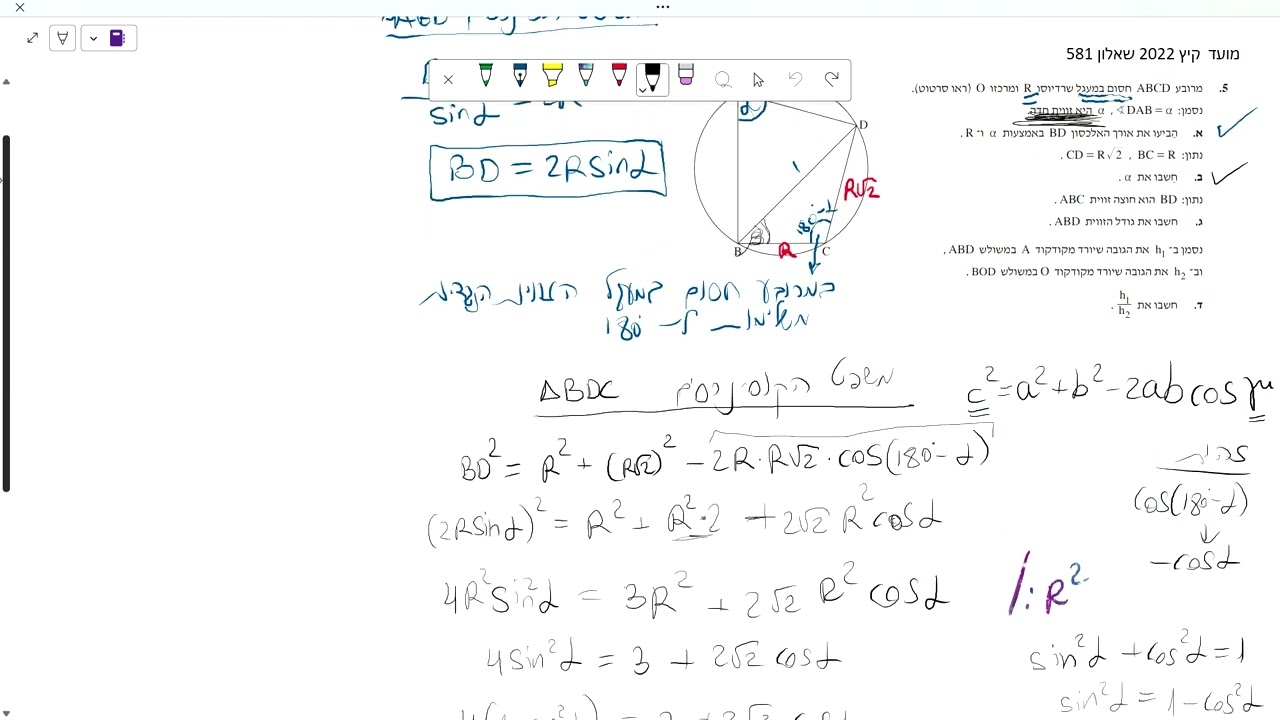 מועד קיץ 2022 שאלון 581
5. מרובע ABCD חסום במעגל שרדיוסו R ומרכזו O (ראו סרטוט).
נסמן: ∢DAB = α , α היא זווית חדה.
א. הביעו את אורך האלכסון BD באמצעות α ו־ R .
נתון: CD = R√2 , BC = R .
ב. חשבו את α .
נתון: BD הוא חוצה זווית ABC .
ג. חשבו את גודל הזווית ABD .
נסמן ב־ h₁ את הגובה שיורד מקודקוד A במשולש ABD ,
וב־ h₂ את הגובה שיורד מקודקוד O במשולש BOD .
ד. חשבו את h₁/h₂ .
sinα
BD = 2Rsinα
α
D
R√2
180°-α
β
B
R
C
במרובע חסום במעגל הזוויות הנגדיות
משלימות ל- 180°
משפט הקוסינוסים ΔBDC
c² = a² + b² - 2ab cos γ
BD² = R² + (R√2)² - 2R·R√2·cos(180°-α)
(2Rsinα)² = R² + R²·2 + 2√2 R² cosα
4R²sin²α = 3R² + 2√2 R² cosα
/: R²
4sin²α = 3 + 2√2 cosα
זהות
cos(180°-α)
↓
-cosα
sin²α + cos²α = 1
sin²α = 1 - cos²α